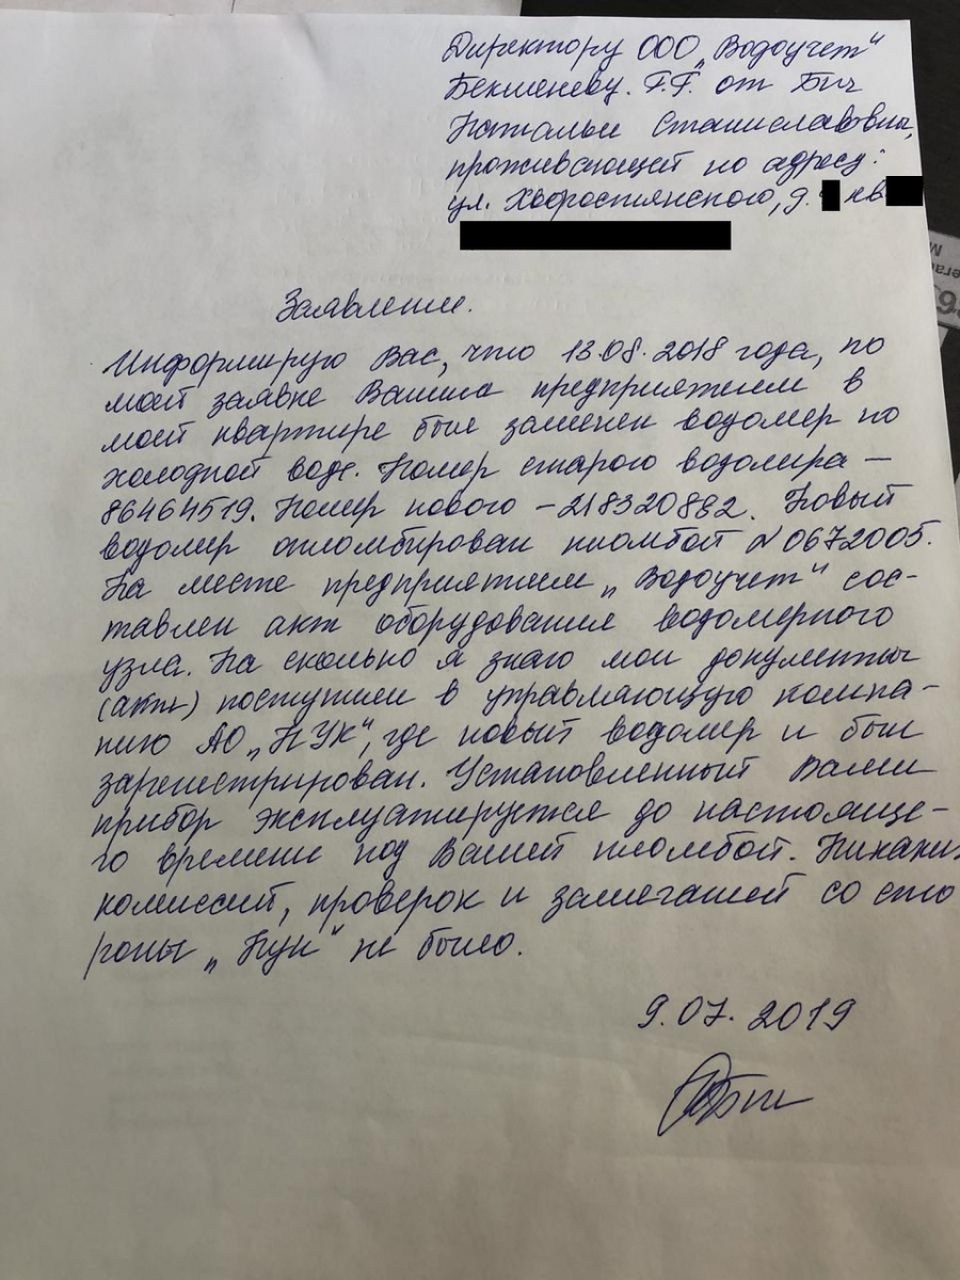 Директору ООО „Водоучет"
Бекшеневу. Г.Г. от Бич
Натальи Станиславовны,
проживающей по адресу:
ул. Хворостянского, д. кв
Заявление.
Информирую Вас, что 13.08.2018 года, по
моей заявке Вашим предприятием в
моей квартире был заменен водомер по
холодной воде. Номер старого водомера –
86464519. Номер нового – 218320882. Новый
водомер опломбирован пломбой №0672005.
На месте предприятием „Водоучет" сос-
тавлен акт оборудования водомерного
узла. На сколько я знаю мои документы
(акты) поступили в управляющую компа-
нию АО „НУК", где новый водомер и был
зарегистрирован. Установленный Вами
прибор эксплуатируется до настояще-
го времени под Вашей пломбой. Никаких
комиссий, проверок и замечаний со сто
роны „Нук" не было.
9.07.2019